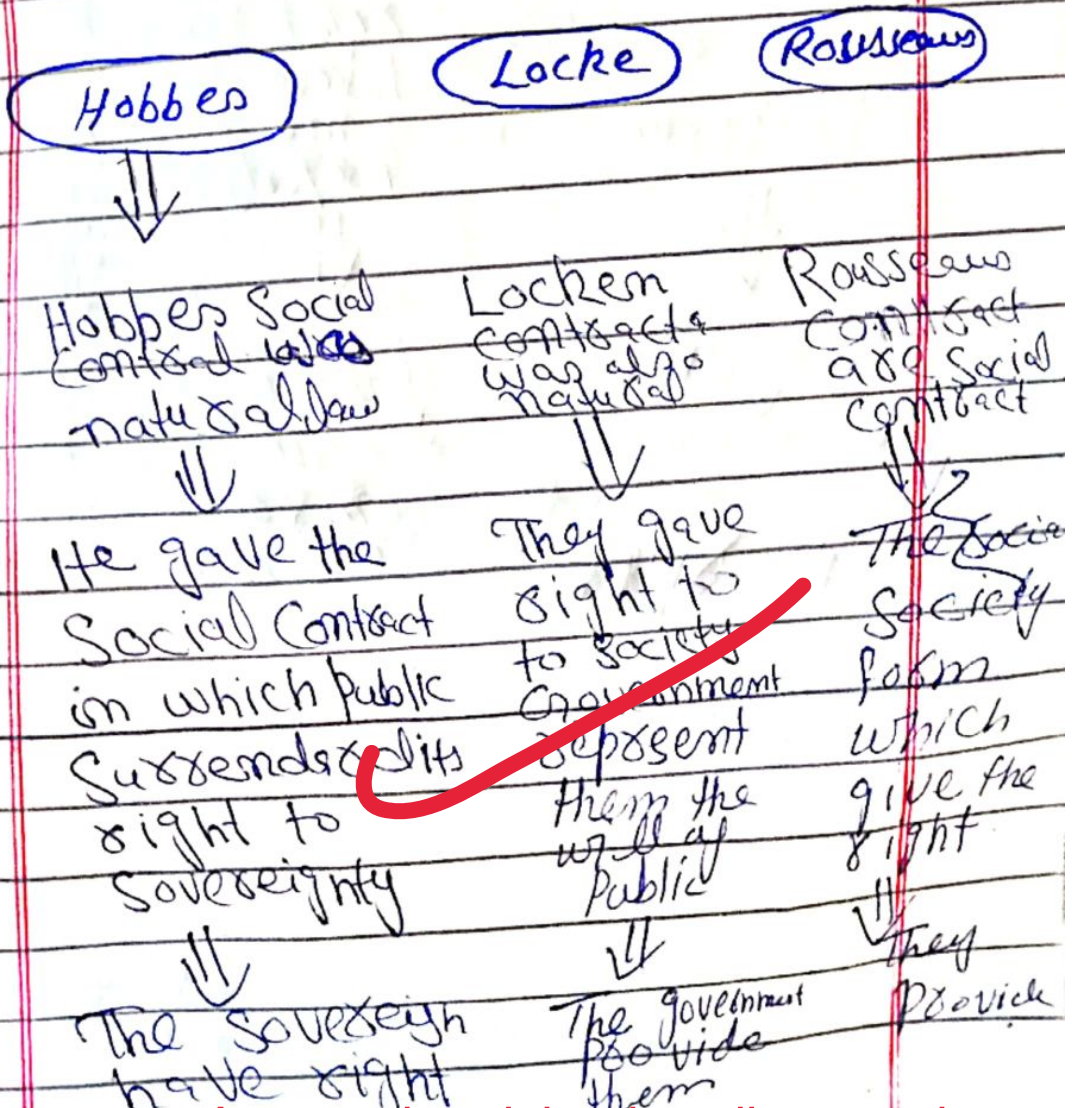 Hobbes
Locke
Rousseaus
Hobbes Social
contral was
natural law
He gave the
Social Contract
in which public
Surrender its
right to
Sovereignty
The Sovereign
have right
Locken
contracts
was also
natural
They gave
right to
to society
Government
represent
them the
will of
Public
The government
Provide
them
Rousseaus
Contract
are Social
contract
The Socia
Society
form
which
give the
right
They
Provide